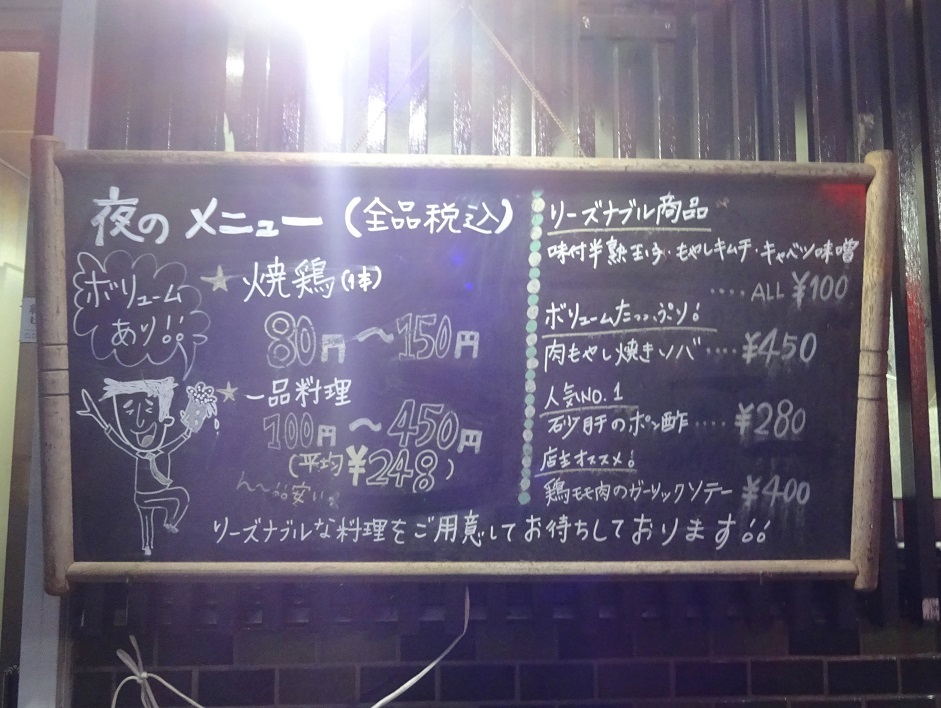 夜のメニュー（全品税込）
ボリューム
あり!!
★ 焼鶏(1本)
80円〜150円
★ 一品料理
100円〜450円
(平均¥248)
ん〜安い
リーズナブル商品
味付半熟玉子・もやしキムチ・キャベツ味噌
････ALL ¥100
ボリュームたっぷり!
肉もやし焼きソバ････¥450
人気NO.1
砂肝のポン酢････¥280
店主オススメ!
鶏モモ肉のガーリックソテー ¥400
リーズナブルな料理をご用意してお待ちしております!!